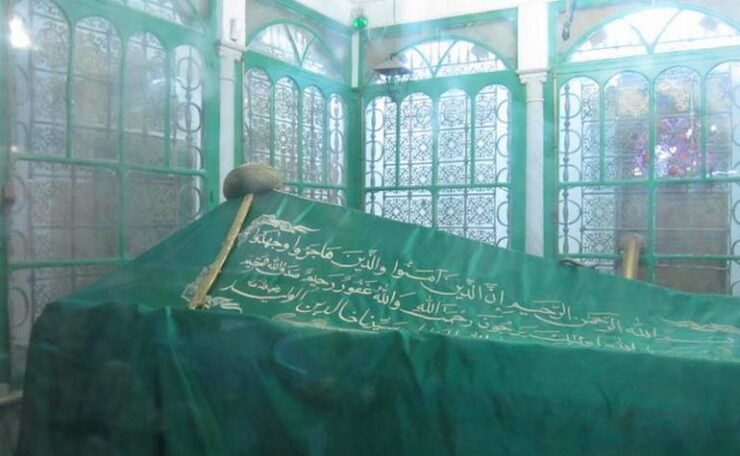 بسم الله الرحمن الرحيم إن الذين آمنوا والذين هاجروا وجهدوا
الله أولئك يرجون رحمة الله والله غفور رحيم صدق الله العظيم
سيدنا خالد بن الوليد